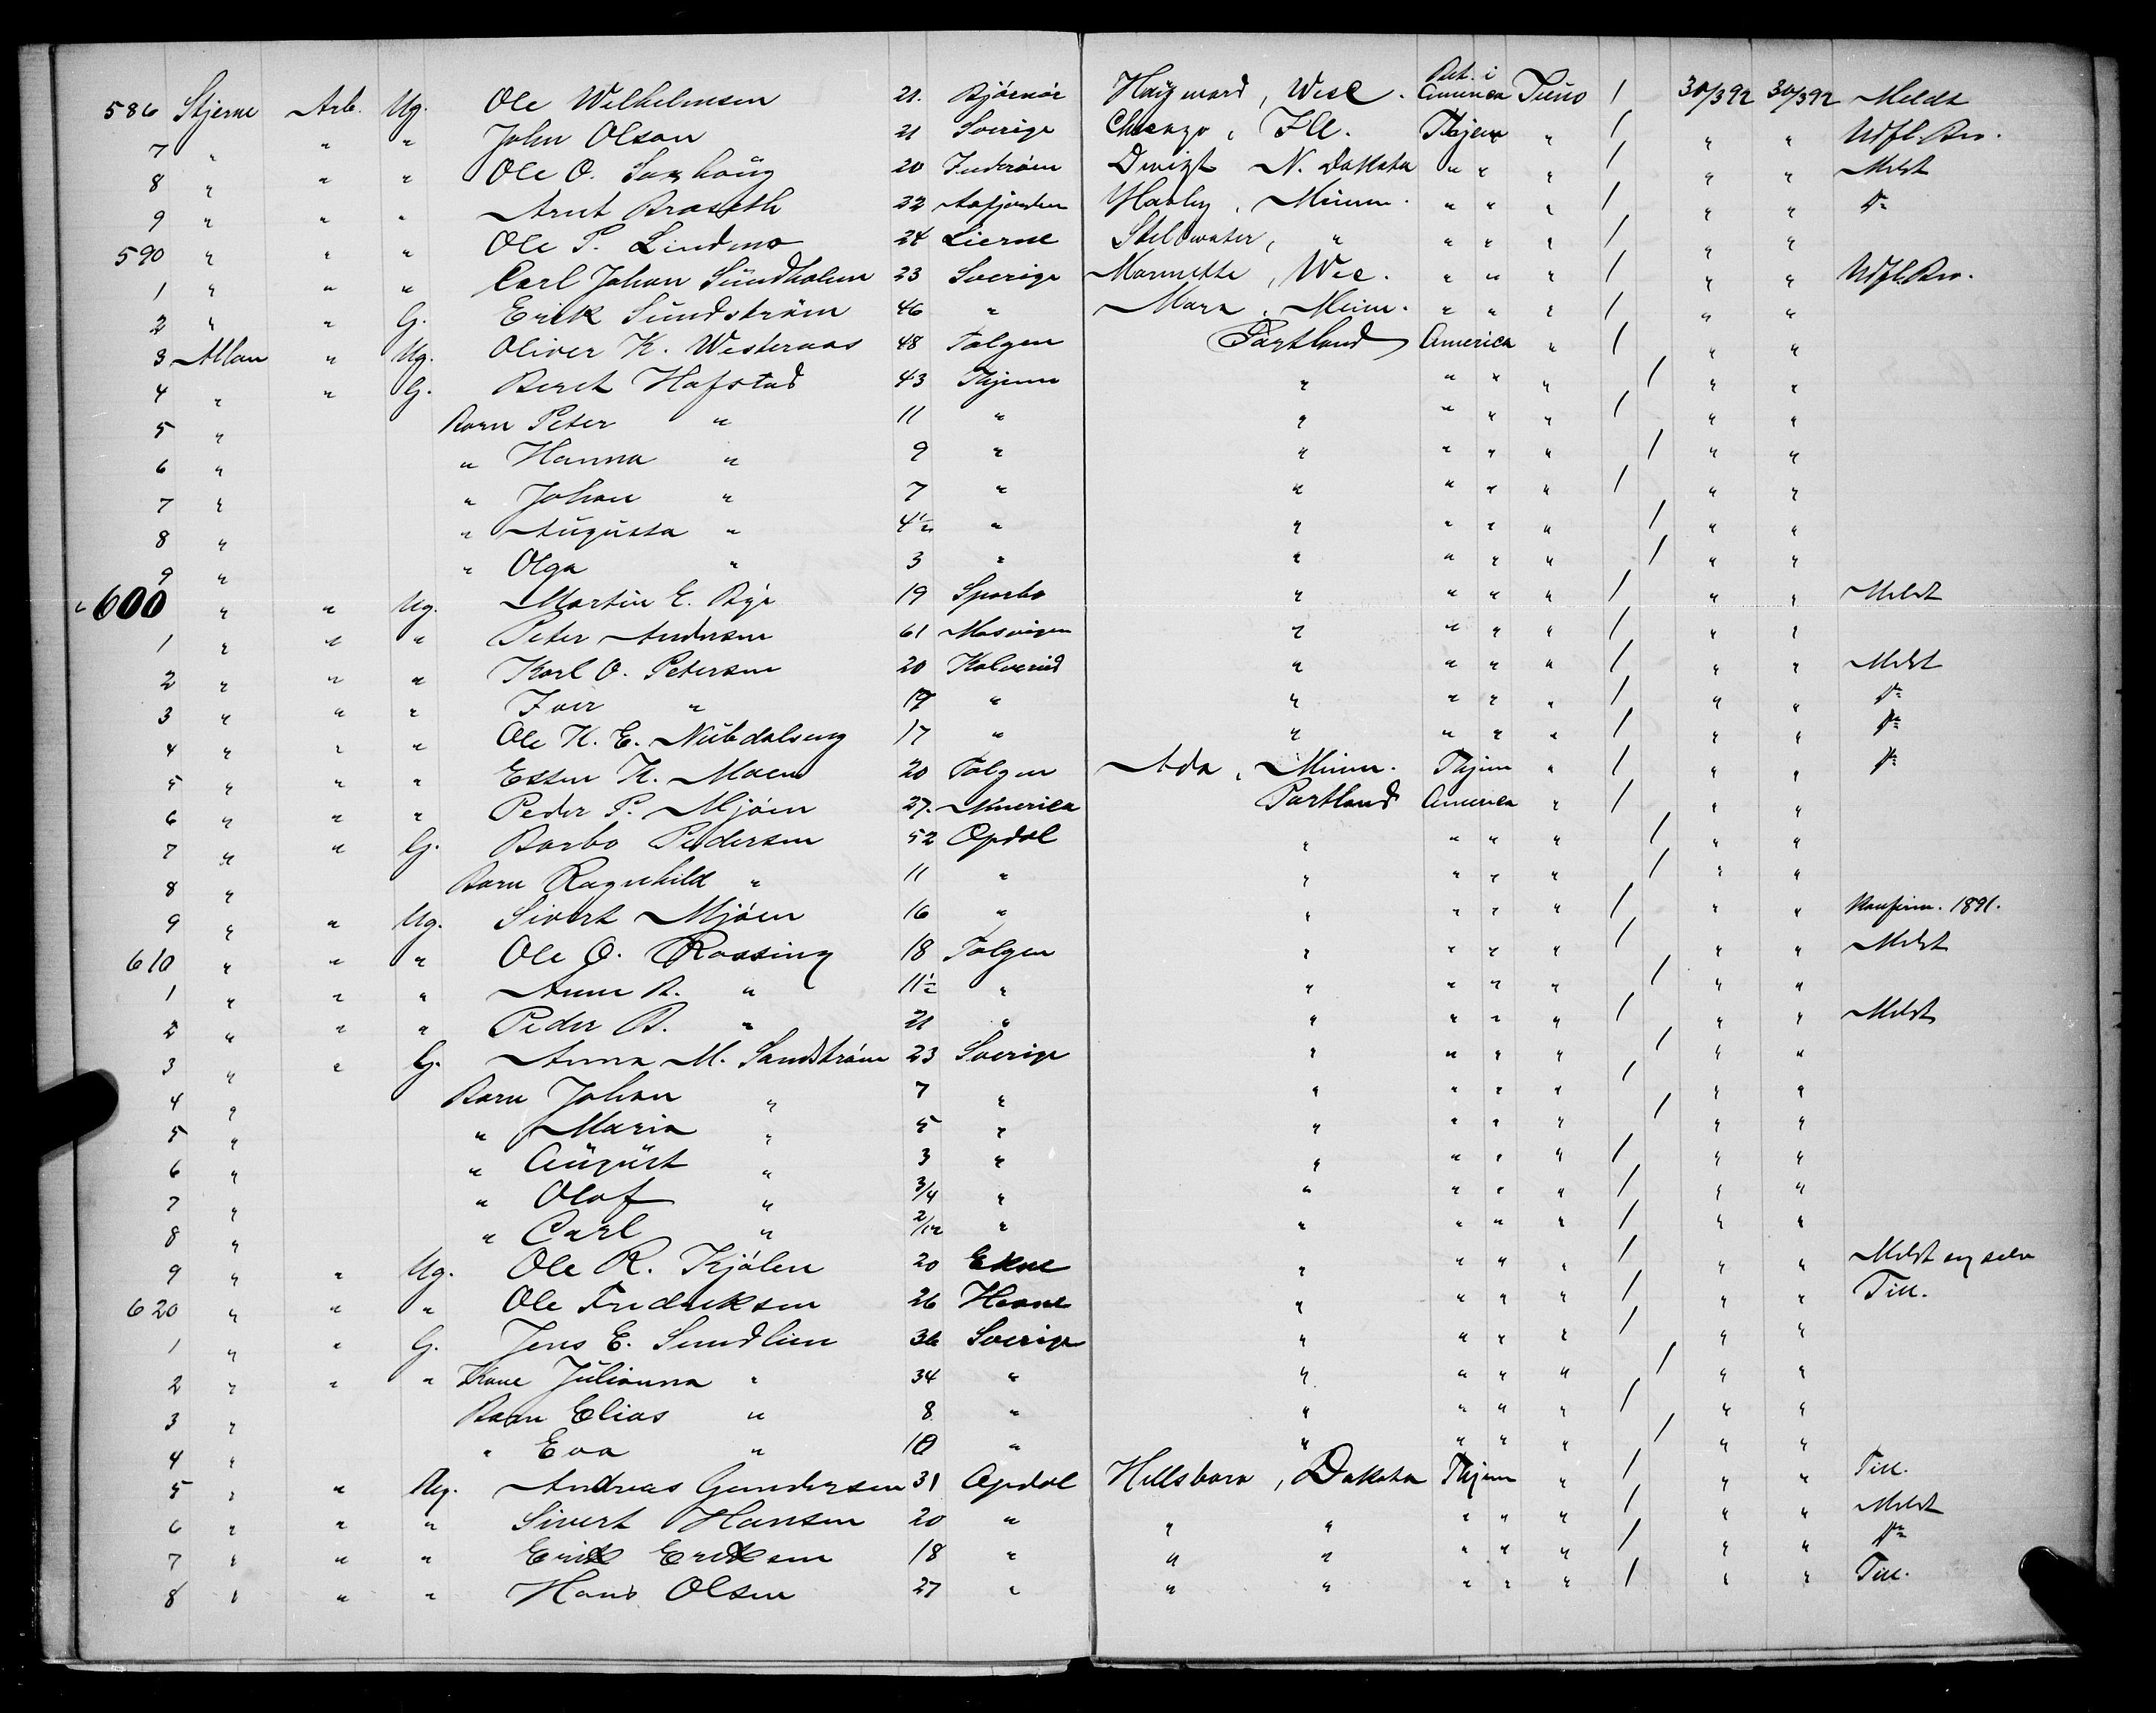 586 Stjerne Arb. Ug. Ole Wilhelmsen 21. Bjørnør Haÿward, Wisc. Bet. i America Juno 1 30/3 92 30/3 92 Meldt
7 " " " John Olson 21 Sverige Chicago, Ill. Thjem " 1 " " Udfl. Bev.
8 " " " Ole O. Saxhaug 20 Inderøen Dwigt N. Dakota " " " 1 " " Meldt
9 " " " Arnt Braseth 22 Aafjorden Hawley, Minn. " " " 1 " " do
590 " " " Ole P. Lindmo 24 Lierne Stillwater, " " " " 1 " "
1 " " " Carl Johan Sundholm 23 Sverige Marinette, Wis. " " " 1 " " Udfl. Bev.
2 " " G. Erik Sundström 46 " Mora, Minn. " " " 1 " "
3 Allan " Ug. Oliver K. Westeraas 48 Tolgen Portland America " 1 " "
4 " " G. Beret Hafstad 43 Thjem " " " " 1 " "
5 " Barn Peter " 11 " " " " " 1 " "
6 " " Hanna " 9 " " " " " 1 " "
7 " " Johan " 7 " " " " " 1 " "
8 " " Augusta " 4½ " " " " " 1 " "
9 " " Olga " 3 " " " " " 1 " "
600 " " Ug. Martin E. Bye 19 Sparbo " " " " 1 " " Meldt
1 " " " Peter Andersen 61 Mosvigen " " " " 1 " "
2 " " " Karl O. Petersen 20 Kolvereid " " " " 1 " " Meldt
3 " " " Iver " 19 " " " " " 1 " " do
4 " " " Ole K. E. 17 " " " " " 1 " " do
5 " " " Esten K. Moen 20 Tolgen Ada, Minn. Thjem " 1 " " do
6 " " " Peder P. Mjøen 27. America Portland America " 1 " "
7 " " G. Barbo Pedersen 52 Opdal " " " " 1 " "
8 " Barn Ragnhild " 11 " " " " " 1 " "
9 " " Ug. Sivert Mjøen 16 " " " " " 1 " " Konfirm. 1891.
610 " " " Ole O. Roasing 18 Tolgen " " " " 1 " " Meldt
1 " " " Anne B. " 11½ " " " " " 1 " "
2 " " " Peder B. " 21 " " " " " 1 " " Meldt
3 " " G. Anna M. Sandström 23 Sverige " " " " 1 " "
4 " Barn Johan " 7 " " " " " 1 " "
5 " " Maria " 5 " " " " " 1 " "
6 " " August " 3 " " " " " 1 " "
7 " " Olof " 3/4 " " " " " 1 " "
8 " " Carl " 2/12 " " " " " 1 " "
9 " " Ug. Ole R. Kjølen 20 Ekne " " " " 1 " " Meldt sig selv
620 " " " Ole Fredriksen 26 Hevne " " " " 1 " " Till.
1 " " G. Jens E. Sundlien 36 Sverige " " " " 1 " "
2 " " " Kone Julianna " 34 " " " " " 1 " "
3 " Barn Elias " 8 " " " " " 1 " "
4 " " Eva " 10 " " " " " 1 " "
5 " " Ug. Andreas Gundersen 31 Opdal Hillsboro, Dakota Thjem " 1 " " Till.
6 " " " Sivert Hansen 20 " " " " " " 1 " " Meldt
7 " " " Erik Eriksen 18 " " " " " " 1 " " do
8 " " " Hans Olsen 27 " " " " " " 1 " " Till.